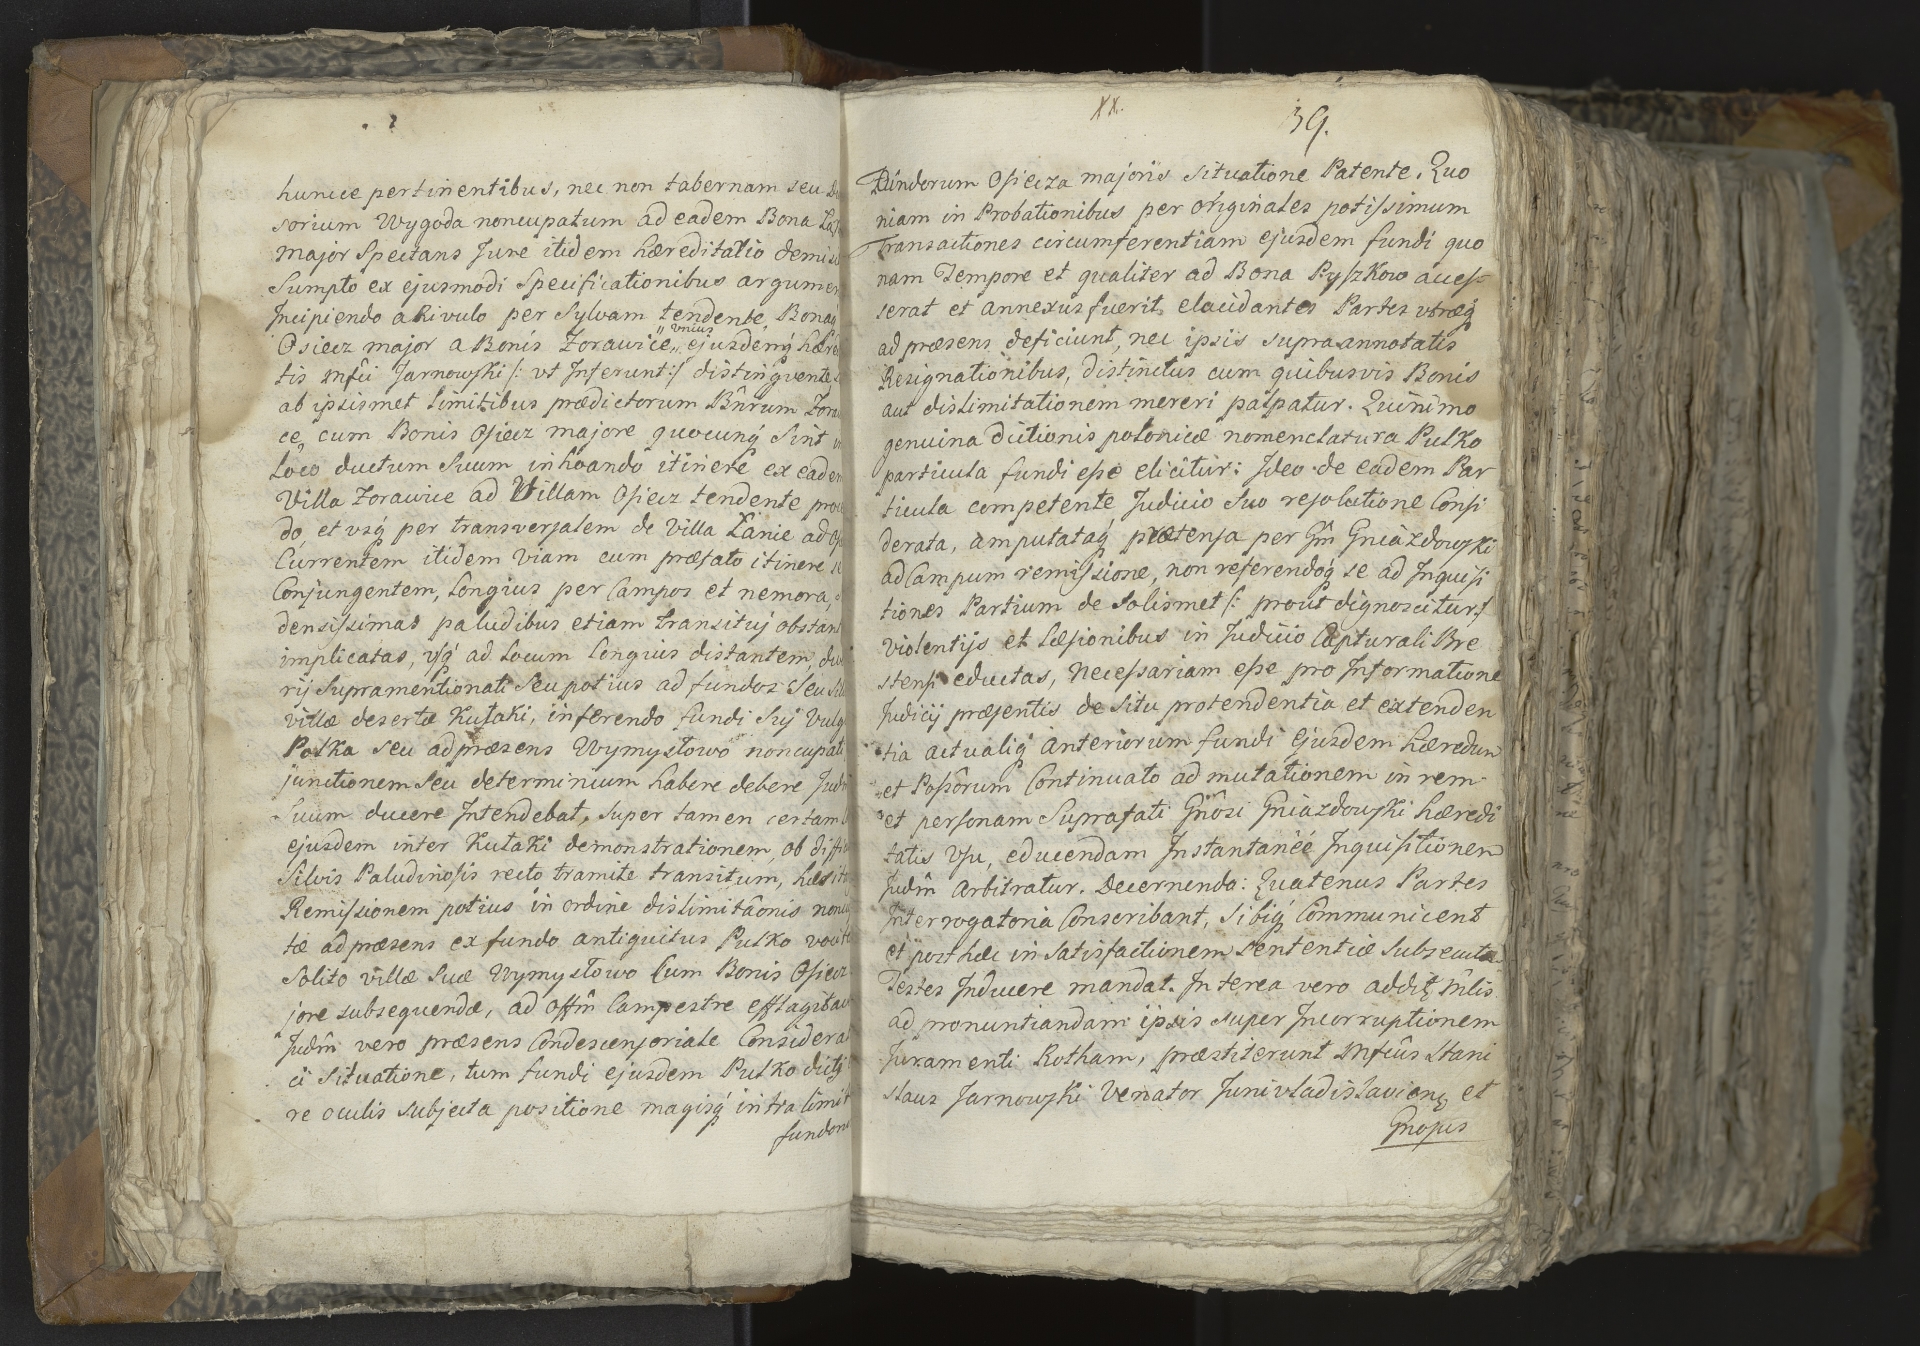 hunice pertinentibus, nec non tabernam seu
sorium Wygoda noncupatum ad eadem Bona
major Spectans Jure itidem hæreditatio
Sumpto ex ejusmodi Specificationibus
Incipiendo a Rivulo per Sylvam tendente,
"vnius
Osiecz major a Bonis Zorawice, ejusdemq́
tis Mfci Jarnowski /: vt Inferunt :/
ab ipsismet limitibus prædictorum Bñrum
ce, cum Bonis Osiecz majore quocunq́ Sint
Loco ductum Suum inhoando itinere ex
Villa Zorawice ad Villam Osiecz tendente
do, et vsq́ per transversalem de Villa Łanie ad
Currentem itidem Viam cum præfato itinere
Conjungentem, Longius per Campos et nemora,
densissimas paludibus etiam transituj
implicatas, vsq́ ad Locum Longius distantem,
rij Supramentionati Seu potius ad fundos Seu
villæ desertæ Kutaki, inferendo fundi Suj
Polka seu ad præsens Wymysłowo
junctionem Seu determinium habere debere
Suum ducere Intendebat, Super tamen
ejusdem inter Kutaki demonstrationem, ob
Silvis Paludinosis recto tramite transitum,
Remissionem potius in ordine dislimitãonis
tæ ad præsens ex fundo antiquitus Pulko
Solito villæ Suæ Wymysłowo Cum Bonis
jore subsequendæ, ad Offm̃ Campestre
Judm̃ vero præsens Condescensoriale
ci Situatione, tum fundi ejusdem Pulko
re oculis subjecta positione magisq́ intra
39.
XX.
Fundorum Osiecza majoris Situatione Patente. Quo
niam in Probationibus per originales potissimum
Transactiones circumferentiam ejusdem fundi quo
nam Tempore et qualiter ad Bona Pyszkowo acces-
serat et annexus fuerit, elucidantes Partes vtræq́
ad præsens deficiunt, nec ipsis supra annotatis
Resignationibus, distinctus cum quibusvis Bonis
aut dislimitationem mereri palpatur. Quinimo
genuina dictionis polonicæ nomenclatura Pulko
particula fundi esse elicitur: Ideo de eadem Par
ticula competente Judicio Suo resolutione Consi
derata, amputatáq́ prætensa per Gm̃ Gniazdowski
ad Campum remissione, non referendoq́ se ad Inquisi
tiones Partium de solismet /: prout dignoscitur :/
violentijs et Læsionibus in Judicio Capturali Bre
stensi eductas, Necessariam esse pro Informatione
Judicij præsentis de Situ protendentia et extenden
tia actualiq́ anteriorum fundi ejusdem hæredum
et Possõrum Continuato ad mutationem in rem
et personam Suprafati Gñosi Gniazdowski hæredi
tatis Vsu, educendam Instantanee Inquisitionem
Judm̃ arbitratur. Decernendo: Quatenus Partes
Interrogatoria Conscribant, Sibiq́ Communicent
et post hæc in Satisfactionem Sententiæ Subsecutæ
Testes Inducere mandat. Interea vero
ad pronuntiandam ipsis super Incorruptionem
Juramenti Rotham, præstiterunt Mfcus Stani
slaus Jarnowski Venator Junivladislaviens, et
Gnosus